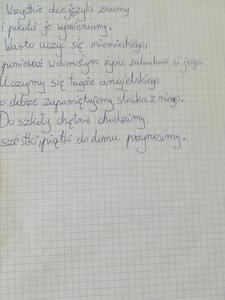 Wszystkie dwa języki znamy
i pokolei je wymieniamy.
Warto uczyć się niemieckiego,
ponieważ w dorosłym życiu
Uczymy się także angielskiego
o dobrze zapamiętujemy słówka z niego.
Do szkoły chętnie chodzimy
szóstki, piątki do domu przynosimy.